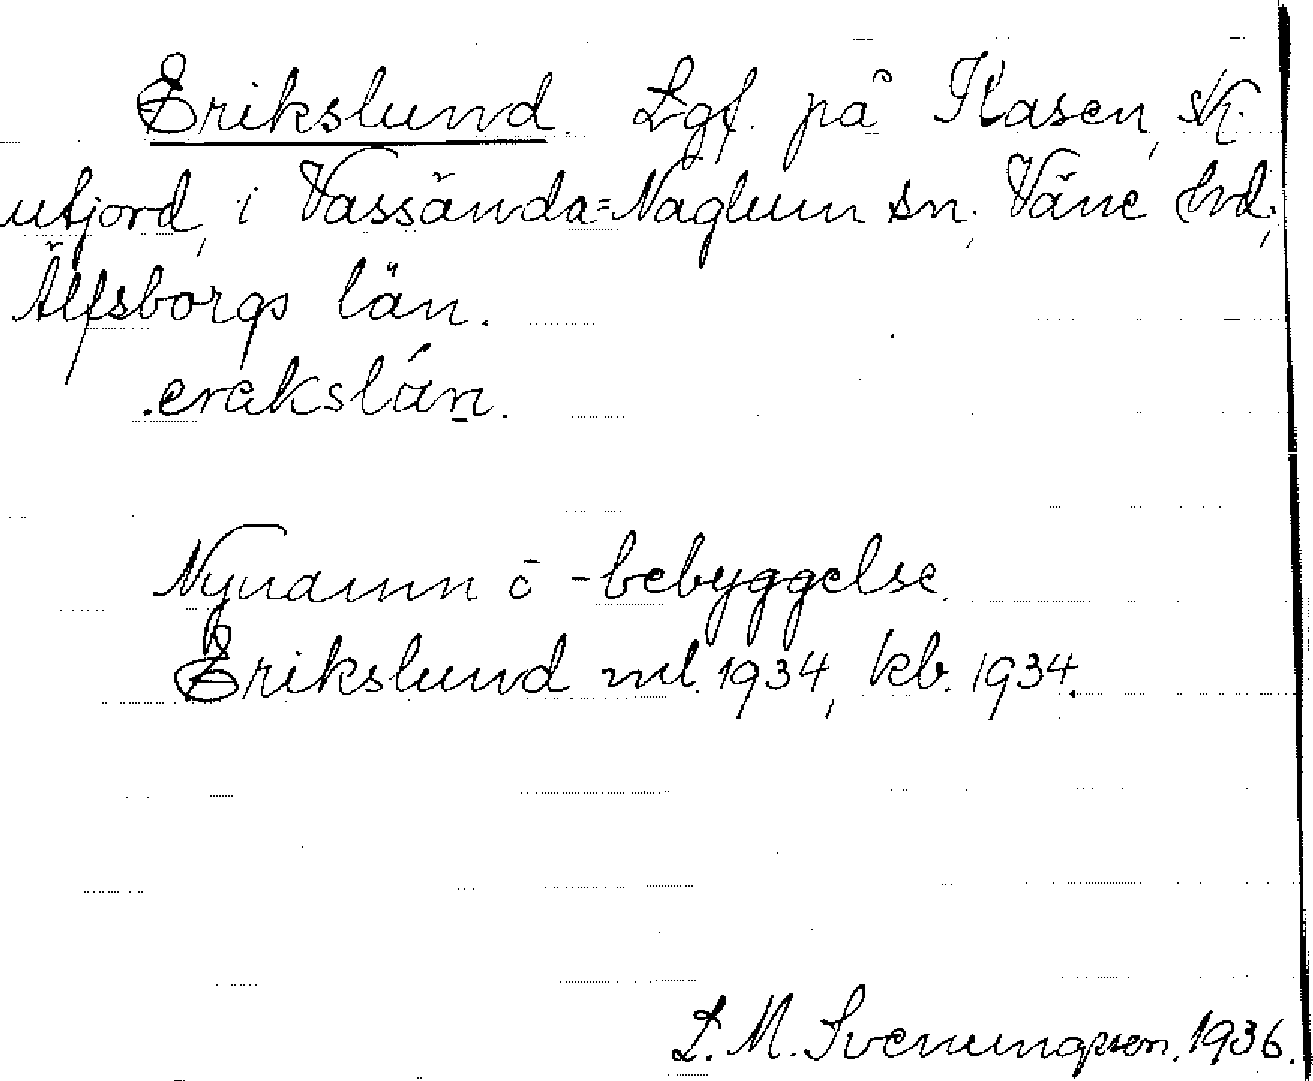 Erikslund. Lgf. på Kasen, st.
utjord, i Vassända=Naglum sn, Väne hd,
Älfsborgs län.
.erakslán.
Nynamn o -bebyggelse.
Erikslund ml. 1934, kb. 1934.
L. M. Svenungsson. 1936.